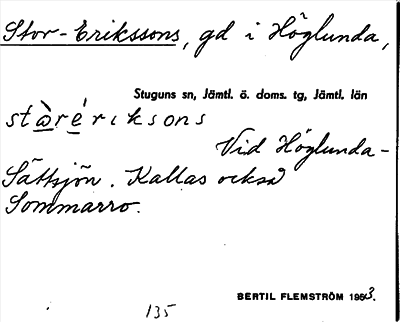 Stor-Erikssons, gd i Höglunda,
Stuguns sn, Jämtl. ö. doms. tg, Jämtl. län
stàrériksons
Vid Höglunda-
Sättsjön. Kallas också
Sommarro.
BERTIL FLEMSTRÖM 1953.
135